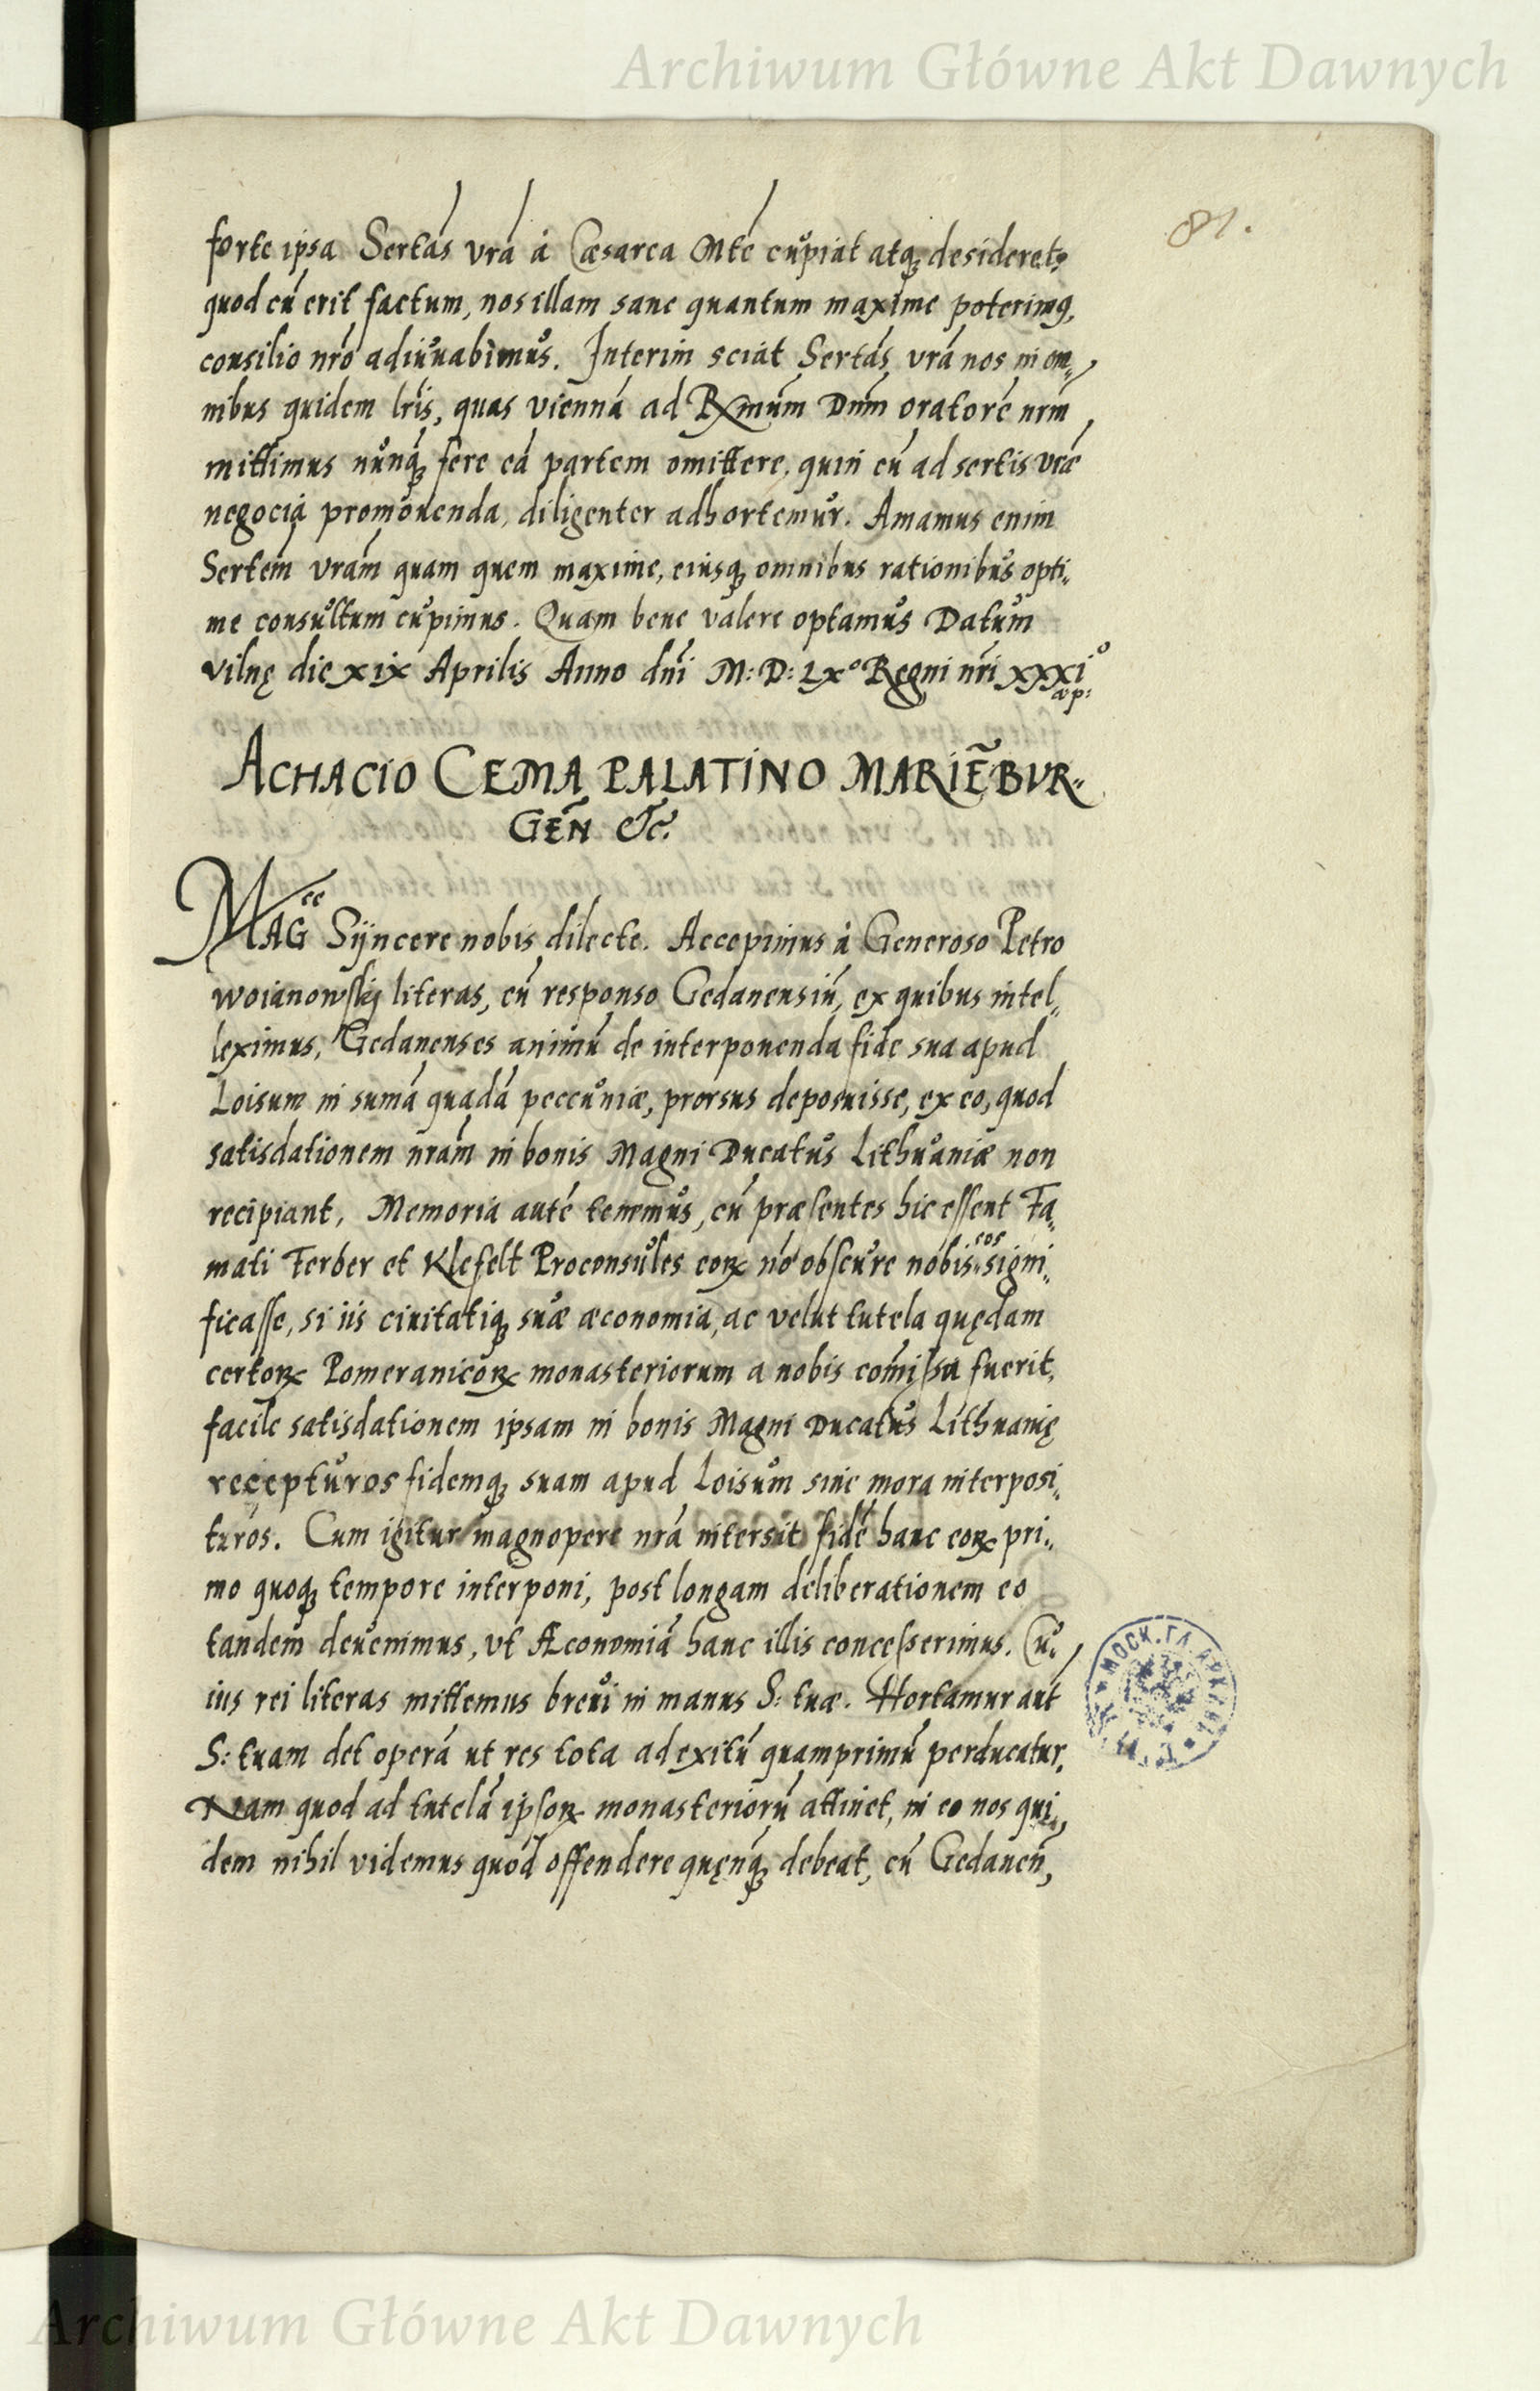 Archiwum Główne Akt Dawnych
81.
forte ipsa Sertás vrá à Cæsarea Mté cupiat atq; desideret,
quod cū erit factum, nos illam sane quantum maxime poterimꝰ,
consilio nrō adiuuabimus. Interim sciat Sertás vrá nos in om„
nibus quidem lrīs, quas vienná ad Rx̄mūm Dnm̄ oratoré nrm̄
mittimus nūnq́; fere eá partem omittere, quin eū ad sertis vræ
negocia promouenda, diligenter adhortemur. Amamus enim
Sertem̄ vram̄ quam quem maxime, eiusq; omnibus rationibus opti„
me consultum cupimus. Quam bene valere optamus Datum
vilnę die xix Aprilis Anno dnī M: D: Lx° Regni nrī xxxi°
æp:
ACHACIO CEMA PALATINO MARIĒBVR„
GEN̄ &c.
MAGce Sÿncere nobis dilecte. Accepimus à Generoso Petro
woianowskij literas, cū responso Gedanensiū, ex quibus intel„
leximus, Gedanenses animū de interponenda fide sua apud
Loisum in sumá quadá peccuniæ, prorsus deposuisse, ex eo, quod
satisdationem nram̄ in bonis Magni Ducatus Lithuaniæ non
recipiant, Memoria auté tenemus, cū præsentes hic essent Fa„
mati Ferber et Klefelt Proconsules eoꝝ nō obscure nobis eos signi„
ficasse, si iis ciuitatiq; suæ æconomia, ac velut tutela quędam
certoꝝ Pomeranicoꝝ monasteriorum a nobis comīssa fuerit,
facile satisdationem ipsam in bonis Magni Ducatus Lithuanię
recepturos fidemq; suam apud Loisum sine mora interposi„
turos. Cum igitur magnopere nrá intersit fidé hanc eoꝝ pri„
mo quoq; tempore interponi, post longam deliberationem eo
tandem deuenimus, vt Æconomiá hanc illis concesserimus. Cu„
ius rei literas mittemus breui in manus S: tuæ. Hortamur aūt
S: tuam det operá ut res tota ad exitū quamprimū perducatur.
Nam quod ad tutelá ipsoꝝ monasteriorū attinet, in eo nos qui„
dem nihil videmus quod offendere quęnq́; debeat, cū Gedanen̄,
МОСК.ГЛ.АРХИВ
Archiwum Główne Akt Dawnych